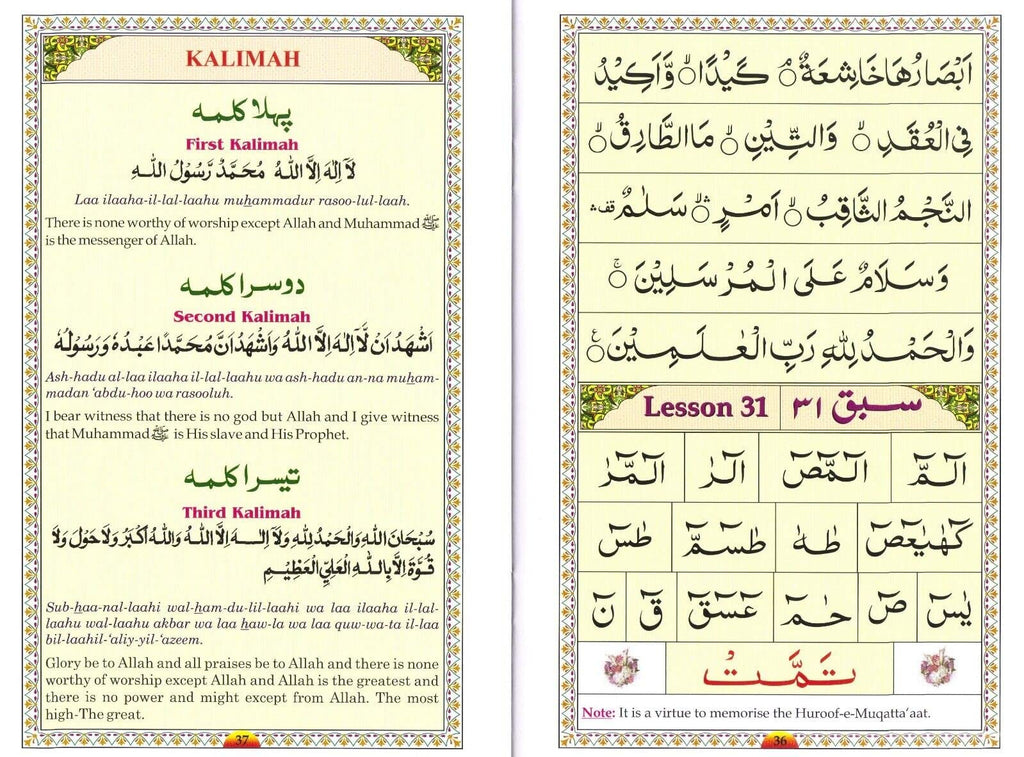 اَبْصَارُهَا خَاشِعَةٌ ۘ كَيْدًا ۙ وَّاَكِيْدُ
فِي الْعُقَدِ ۙ وَالتِّيْنِ ۙ مَا الطَّارِقُ ۙ
النَّجْمُ الثَّاقِبُ ۙ اَمْرٍ ۛ سَلٰمٌ قف
وَسَلَامٌ عَلَى الْمُرْسَلِيْنَ ۚ
وَالْحَمْدُ لِلّٰهِ رَبِّ الْعٰلَمِيْنَ ع
Lesson 31 سبق ٣١
الٓمّٓ الٓمّٓصٓ الٓرٰ الٓمّٓرٰ
كٓهٰيٰعٓصٓ طٰهٰ طٰسٓمّٓ طٰسٓ
يٰسٓ صٓ حٰمٓ عٓسٓقٓ قٓ نٓ
تَمَّتْ
Note: It is a virtue to memorise the Huroof-e-Muqatta‘aat.
36
KALIMAH
پہلا کلمہ
First Kalimah
لَآ اِلٰهَ اِلَّا اللّٰهُ مُحَمَّدٌ رَّسُوْلُ اللّٰهِ
Laa ilaaha-il-lal-laahu muhammadur rasoo-lul-laah.
There is none worthy of worship except Allah and Muhammad ﷺ
is the messenger of Allah.
دوسرا کلمہ
Second Kalimah
اَشْهَدُ اَنْ لَّآ اِلٰهَ اِلَّا اللّٰهُ وَاَشْهَدُ اَنَّ مُحَمَّدًا عَبْدُهٗ وَرَسُوْلُهٗ
Ash-hadu al-laa ilaaha il-lal-laahu wa ash-hadu an-na muham-
madan ‘abdu-hoo wa rasooluh.
I bear witness that there is no god but Allah and I give witness
that Muhammad ﷺ is His slave and His Prophet.
تیسرا کلمہ
Third Kalimah
سُبْحَانَ اللّٰهِ وَالْحَمْدُ لِلّٰهِ وَلَآ اِلٰهَ اِلَّا اللّٰهُ وَاللّٰهُ اَكْبَرُ وَلَا حَوْلَ وَلَا
قُوَّةَ اِلَّا بِاللّٰهِ الْعَلِيِّ الْعَظِيْمِ
Sub-haa-nal-laahi wal-ham-du-lil-laahi wa laa ilaaha il-lal-
laahu wal-laahu akbar wa laa haw-la wa laa quw-wa-ta il-laa
bil-laahil-‘aliy-yil-‘azeem.
Glory be to Allah and all praises be to Allah and there is none
worthy of worship except Allah and Allah is the greatest and
there is no power and might except from Allah. The most
high-The great.
37